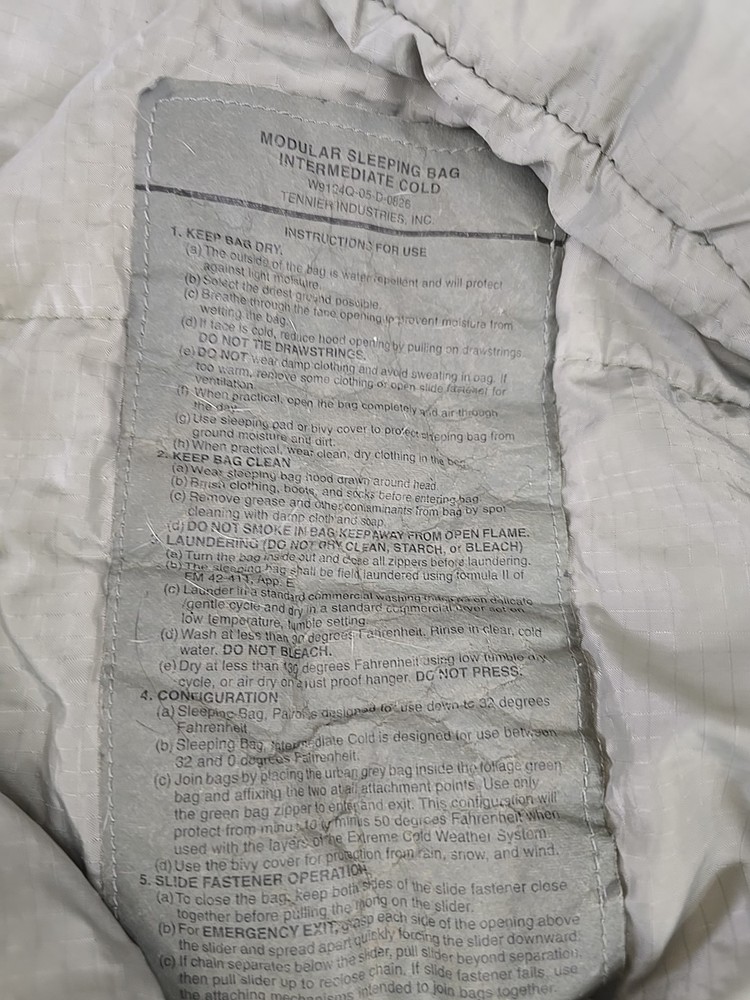 MODULAR SLEEPING BAG
INTERMEDIATE COLD
W9124Q-05-D-0826
TENNIER INDUSTRIES, INC.
INSTRUCTIONS FOR USE
1. KEEP BAG DRY.
(a) The outside of the bag is water repellent and will protect
against light moisture.
(b) Select the driest ground possible.
(c) Breathe through the face opening to prevent moisture from
wetting the bag.
(d) If face is cold, reduce hood opening by pulling on drawstrings.
DO NOT TIE DRAWSTRINGS.
(e) DO NOT wear damp clothing and avoid sweating in bag. If
too warm, remove some clothing or open slide fastener for
ventilation.
(f) When practical, open the bag completely and air through
the day.
(g) Use sleeping pad or bivy cover to protect sleeping bag from
ground moisture and dirt.
(h) When practical, wear clean, dry clothing in the bag.
2. KEEP BAG CLEAN
(a) Wear sleeping bag hood drawn around head.
(b) Brush clothing, boots, and socks before entering bag.
(c) Remove grease and other contaminants from bag by spot
cleaning with damp cloth and soap.
(d) DO NOT SMOKE IN BAG KEEP AWAY FROM OPEN FLAME.
3. LAUNDERING (DO NOT DRY CLEAN, STARCH, or BLEACH)
(a) Turn the bag inside out and close all zippers before laundering.
(b) The sleeping bag shall be field laundered using formula II of
FM 42-411, App. E.
(c) Launder in a standard commercial washing on delicate
/gentle cycle and dry in a standard commercial dryer set on
low temperature, tumble setting.
(d) Wash at less than 90 degrees Fahrenheit. Rinse in clear, cold
water. DO NOT BLEACH.
(e) Dry at less than 130 degrees Fahrenheit using low tumble dry
cycle, or air dry on a rust proof hanger. DO NOT PRESS.
4. CONFIGURATION
(a) Sleeping Bag, Patrol is designed for use down to 32 degrees
Fahrenheit.
(b) Sleeping Bag, Intermediate Cold is designed for use between
32 and 0 degrees Fahrenheit.
(c) Join bags by placing the urban grey bag inside the foliage green
bag and affixing the two at all attachment points. Use only
the green bag zipper to enter and exit. This configuration will
protect from minus 10 to minus 50 degrees Fahrenheit when
used with the layers of the Extreme Cold Weather System.
(d) Use the bivy cover for protection from rain, snow, and wind.
5. SLIDE FASTENER OPERATION.
(a) To close the bag, keep both sides of the slide fastener close
together before pulling the thong on the slider.
(b) For EMERGENCY EXIT, grasp each side of the opening above
the slider and spread apart quickly forcing the slider downward.
(c) If chain separates below the slider, pull slider beyond separation,
then pull slider up to reclose chain. If slide fastener fails, use
the attaching mechanisms intended to join bags together.